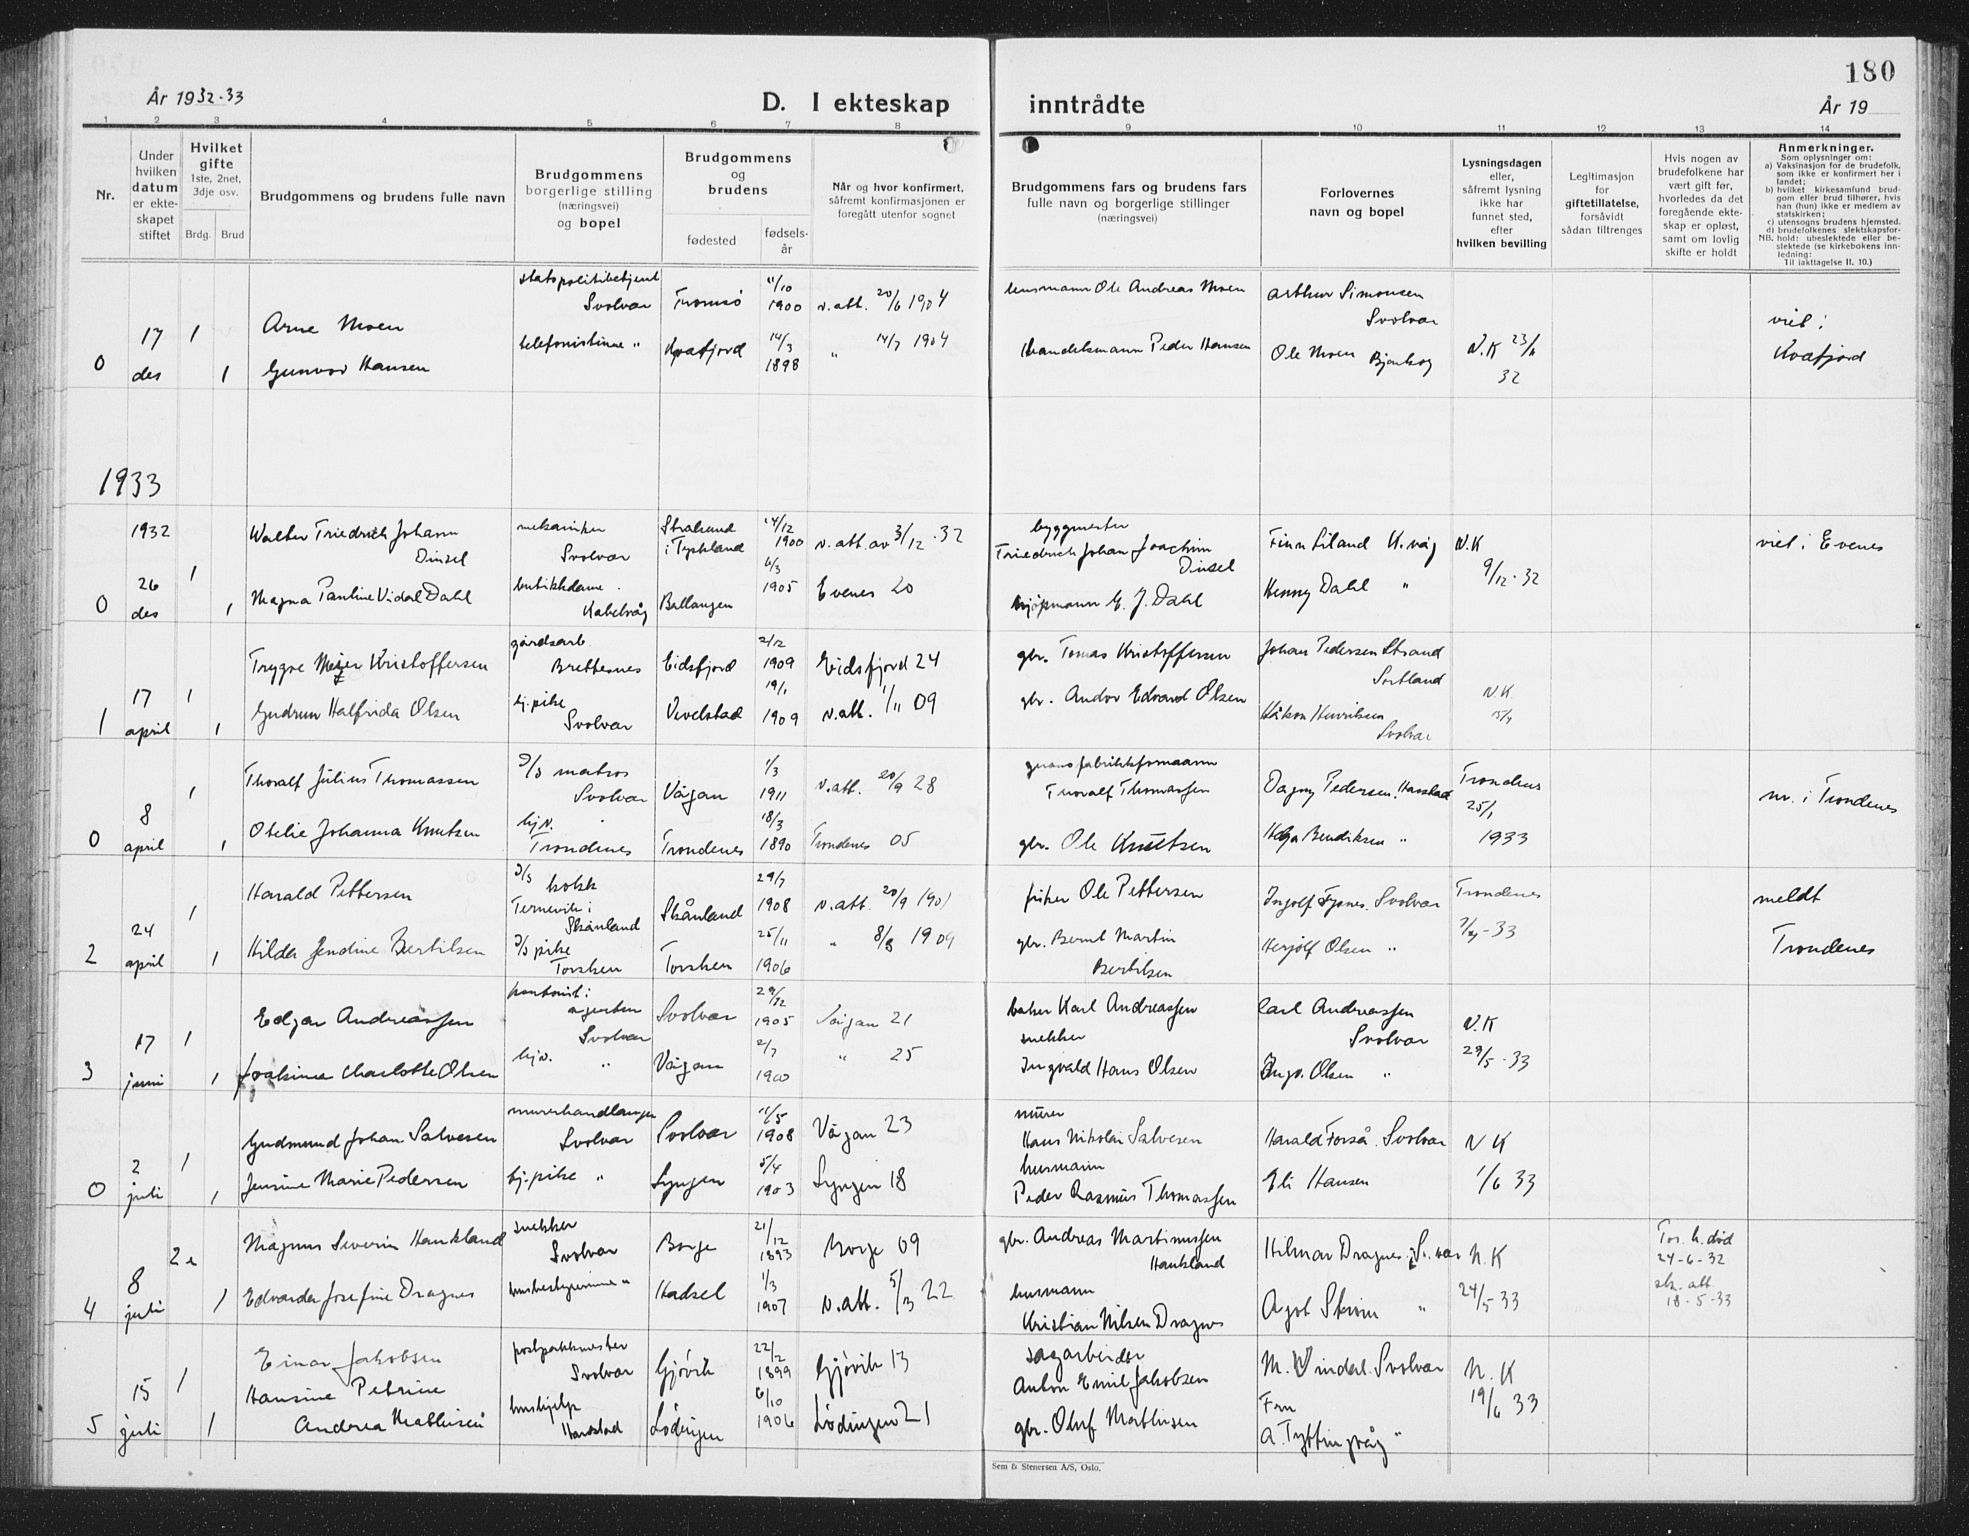 180
År 1932-33
D. I ekteskap inntrådte
År 19
1 2 3 4 5 6 7 8 9 10 11 12 13 14
Nr.
Under
hvilken
datum
er ekte-
skapet
stiftet
Hvilket
gifte
1ste, 2net,
3dje osv.
Brdg. Brud
Brudgommens og brudens fulle navn
Brudgommens
borgerlige stilling
(næringsvei)
og bopel
Brudgommens
og
brudens
fødested
fødsels-
år
Når og hvor konfirmert,
såfremt konfirmasjonen er
foregått utenfor sognet
Brudgommens fars og brudens fars
fulle navn og borgerlige stillinger
(næringsvei)
Forlovernes
navn og bopel
Lysningsdagen
eller,
såfremt lysning
ikke har
funnet sted,
efter
hvilken bevilling
Legitimasjon
for
giftetillatelse,
forsåvidt
sådan tiltrenges
Hvis nogen av
brudefolkene har
vært gift før,
hvorledes da det
foregående ekte-
skap er opløst,
samt om lovlig
skifte er holdt
Anmerkninger.
Som oplysninger om:
a) Vaksinasjon for de brudefolk,
som ikke er konfirmert her i
landet;
b) hvilket kirkesamfund brud-
gom eller brud tilhører, hvis
han (hun) ikke er medlem av
statskirken;
c) utensogns brudens hjemsted.
d) brudefolkenes slektskapsfor-
NB. hold: ubeslektede eller be-
slektede (se kirkebokens inn-
ledning:
Til iakttagelse II. 10.)
0
17
des
1
1
Arne Moen
Gunvor Hansen
statspolitibetjent
Svolvær
telefonistinne "
Tromsø
Kvæfjord
11/10
1900
14/3
1898
v. att. 20/6 1904
" 14/7 1904
lensmann Ole Andreas Moen
Handelsmann Peder Hansen
Arthur Simonsen
Svolvær
Ole Moen
N.K 23/11
32
viet i
Kvæfjord
1933
0
1932
26
des
1
1
Walter Friedrich Johann
Dinsel
Magna Pauline Vidal Dahl
mekaniker
Svolvær
butikkdame
Kabelvåg
Stralsund
i Tyskland
Ballangen
14/12
1900
6/3
1905
v. att. av 3/12 . 32
Evenes 20
byggmester
Friedrich Johan Joachim
Dinsel
kjøpmann G. J. Dahl
Finn Liland K.våg
Henny Dahl "
N.K
9/12 . 32
viet i Evenes
1
17
april
1
1
Trygve Meyer Kristoffersen
Gudrun Halfrida Olsen
gårdsarb.
Brettesnes
hj. pike
Svolvær
Eidsfjord
Vevelstad
2/12
1909
19/1
1909
Eidsfjord 24
v. att. 1/11 09
gbr. Tomas Kristoffersen
gbr. Andor Edvard Olsen
Johan Pedersen Strand
Sortland
Håkon Henriksen
Svolvær
N.K.
0
8
april
1
1
Thoralf Julius Thomassen
Otelie Johanna Knutsen
D/S matros
Svolvær
hjv.
Trondenes
Vågan
Trondenes
1/3
1911
18/3
1890
v. att. 20/9 28
Trondenes 05
guanofabrikkformann
Thoralf Thomassen
gbr. Ole Knutsen
Dagny Pedersen. Harstad
Helga Bendiksen "
Trondenes
25/1
1933
nr. i Trondenes
2
24
april
1
1
Harald Pettersen
Hilda Jendine Bertilsen
D/S kokk
Ternevik i
Skånland
D/S pike
Torsken
Skånland
Torsken
29/7
1908
25/11
1906
v. att. 20/9 1901
" 8/8 1909
fisker Ole Pettersen
gbr. Bernt Martin
Bertilsen
Ingolf Fypnes. Svolvær
Herjolf Olsen "
Trondenes
33
meldt
Trondenes
3
17
juni
1
1
Edgar Andreassen
Joakime Charlotte Olsen
kontorist i
agentur
Svolvær
hjv. "
Svolvær
Vågan
29/12
1905
2/7
1900
Vågan 21
" 25
baker Karl Andreassen
snekker
Ingvald Hans Olsen
Carl Andreassen
Svolvær
Ingv. Olsen "
N.K
29/5 - 33
0
2
juli
1
1
Gudmund Johan Salvesen
Jensine Marie Pedersen
murerhandlanger
Svolvær
hj. pike "
Svolvær
Lyngen
11/5
1908
5/4
1903
Vågan 23
Lyngen 18
murer
Hans Nikolai Salvesen
husmann
Peder Rasmus Thomassen
Harald Forså. Svolvær
Eli Hansen
N K
1/6 33
4
8
juli
2e
1
Magnus Severin Haukland
Edvarda Josefine Dragnes
snekker
Svolvær
husbestyrerinne "
Borge
Hadsel
21/12
1893
1/3
1907
Borge 09
v. att. 5/3 22
gbr. Andreas Martinussen
Haukland
husmann
Kristian Nilsen Dragnes
Hilmar Dragnes. Svolvær
Agot Strøm "
N.K
24/5 33
For. h. død
24-6-32
sk. att.
18-5-33
5
15
juli
1
1
Einar Jakobsen
Hansine Petrine
Andrea Mathisen
postpakkmester
Svolvær
hushjelp
Harstad
Gjøvik
Lødingen
22/2
1899
6/10
1906
Gjøvik 13
Lødingen 21
sagarbeider
Anton Emil Jakobsen
gbr. Oluf Mathisen
M. Vinderl. Svolvær
Fru
A. Tyttingvåg "
N. K
19/6 33
Sem & Stenersen A/S, Oslo.